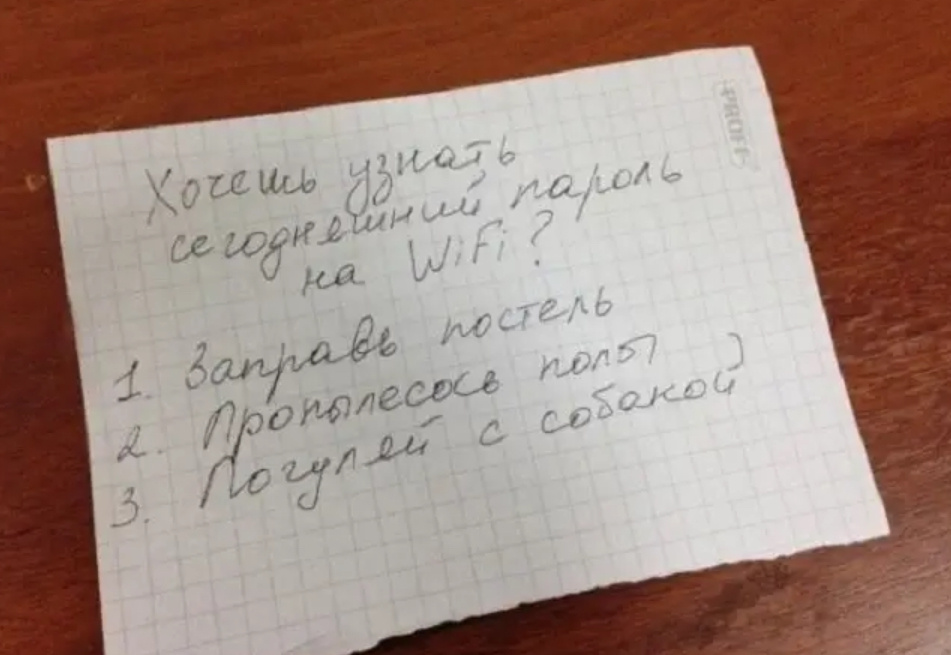 PROFF
Хочешь узнать
сегодняшний пароль
на WiFi?
1. Заправь постель
2. Пропылесось полы
3. Погуляй с собакой )